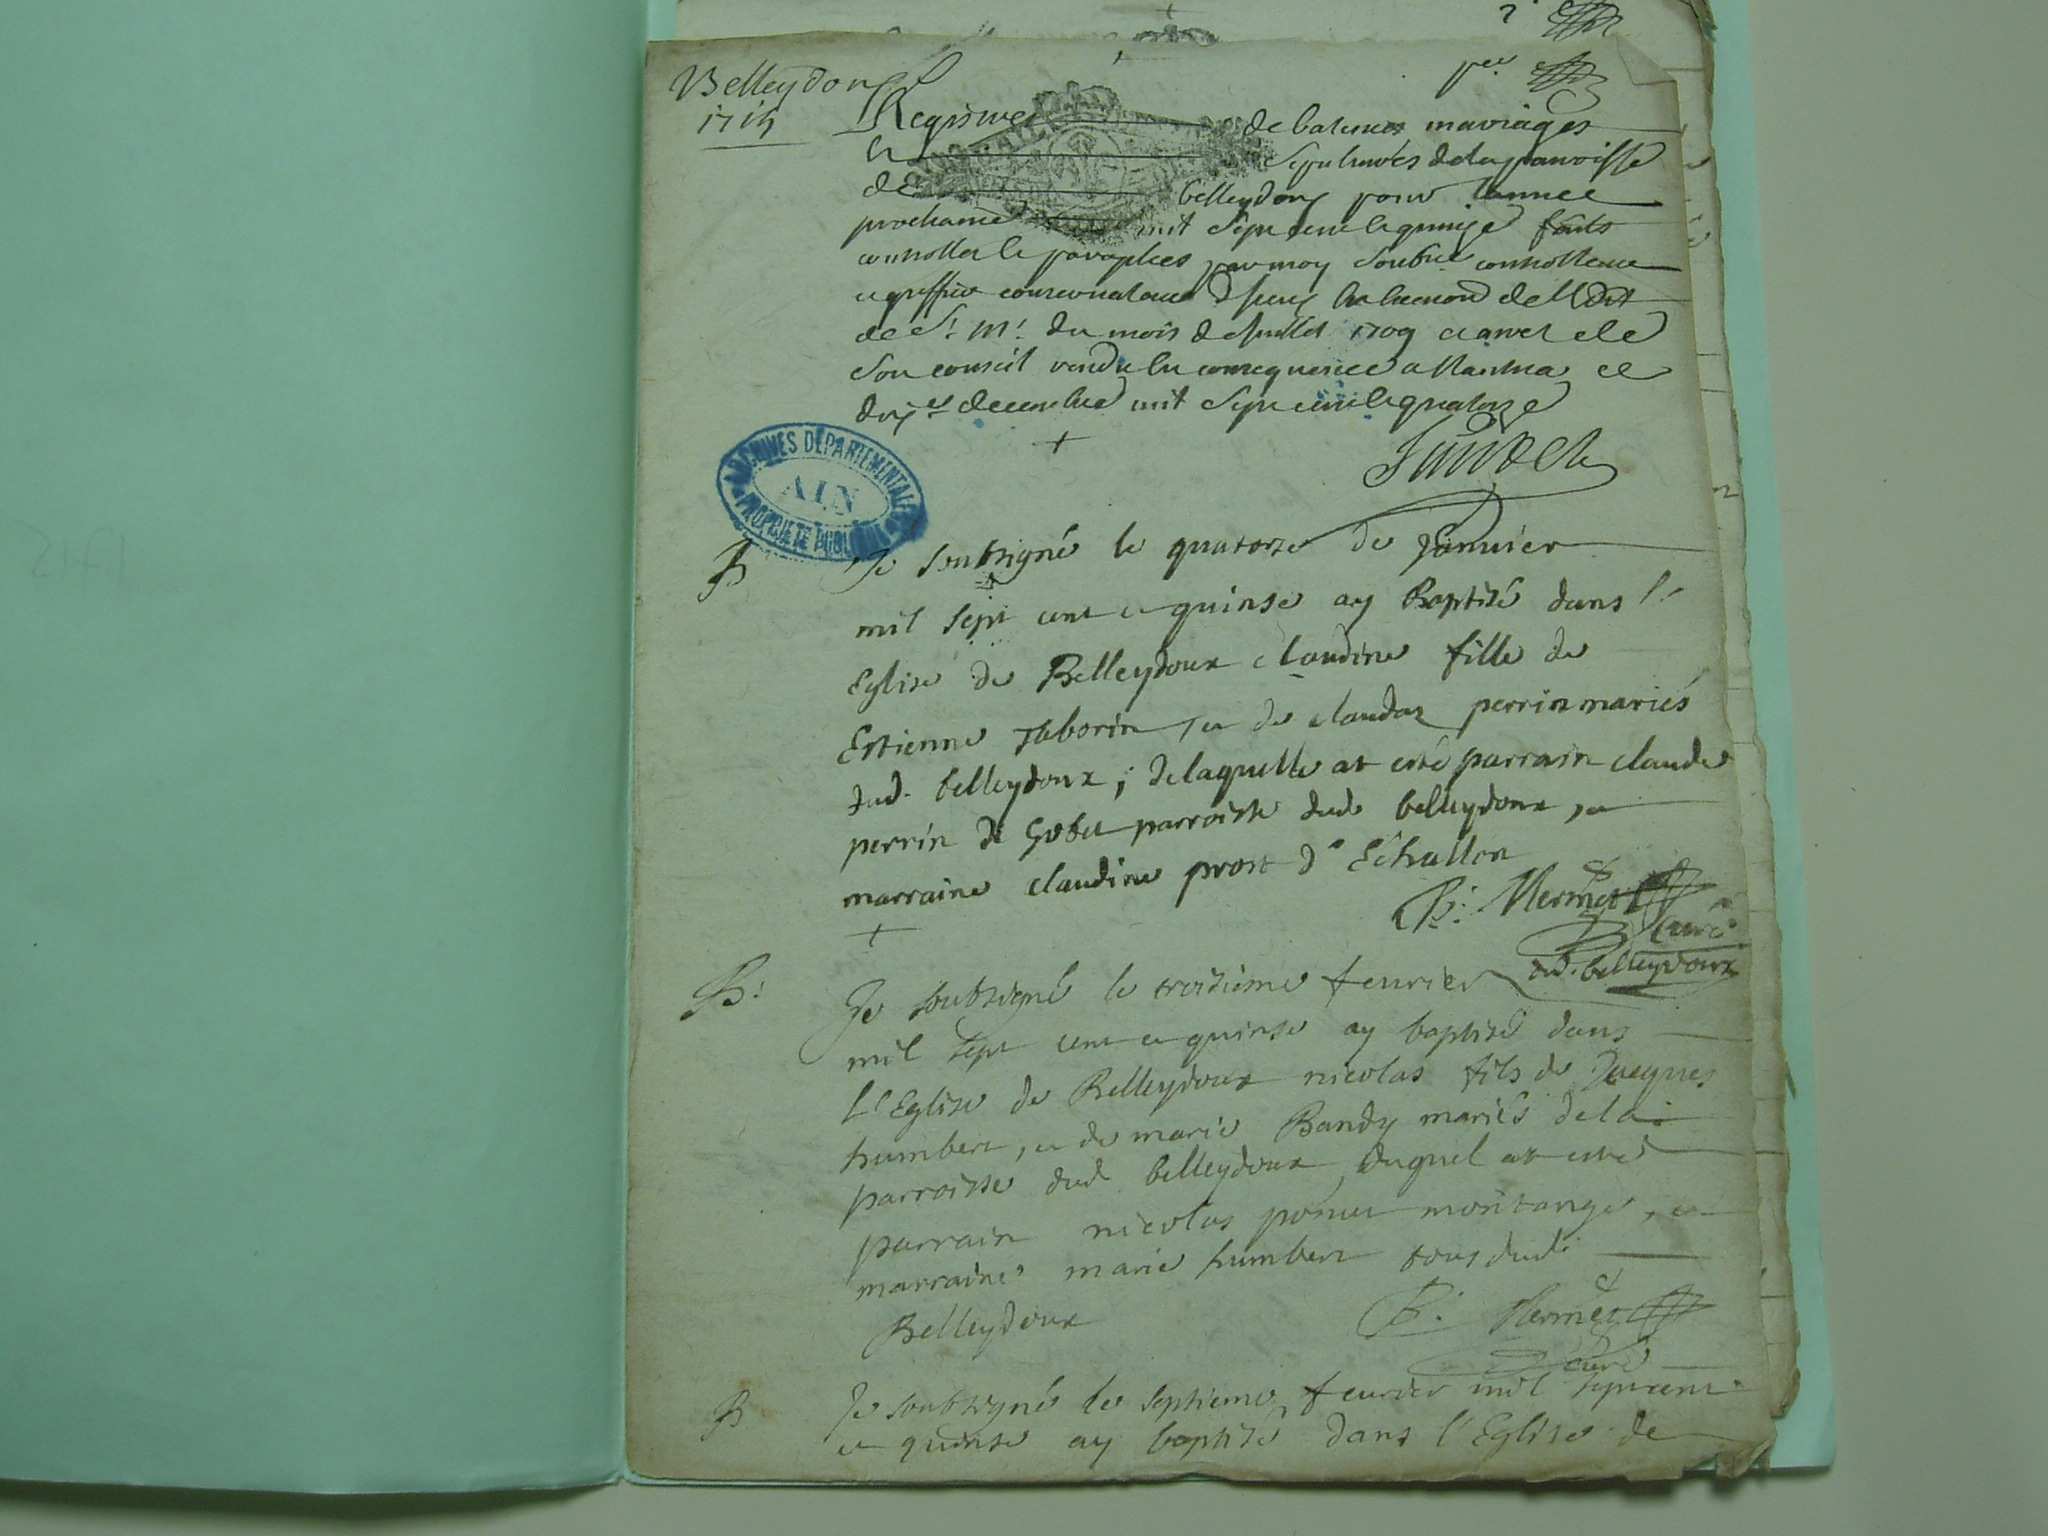 Belleydoux
1715
Registre de batemes mariages
et Sepultures de la parroisse
de belleydoux pour lannee
prochaine mil Sept cent et quinze
controller et paraphes par moy controlleur
et greffier
de S. M. du mois de Juillet 1709 et arret de
Son conseil rendu en consequence a Nantua ce
decembre mil Sept cent et quatorze
+
ARCHIVES DEPARTEMENTALES
AIN
PROPRIETE PUBLIQUE
B Je soubsigné le quatorse de Januier
mil sept cent et quinse ay Baptisé dans l'
Eglise de Belleydoux claudine fille de
Estienne Taborin, et de claudaz perrin mariés
dud. belleydoux; delaquelle at esté parrain claude
perrin de Gobet parroisse dud belleydoux, et
marraine claudine prost d'Echallon
B: Mermet
Curé
dud. belleydoux
+
B: Je soubsigné le troisieme feurier
mil sept cent et quinse ay baptisé dans
L'Eglise de Belleydoux nicolas fils de Jacques
humbert, et de marie Bandy mariés de la
parroisse dud belleydoux, duquel at esté
parrain nicolas poncet montange, et
marraine marie humbert tous dud.
Belleydoux
B. Mermet
curé
B Je soubsigné le septieme feurier mil sept cent
et quinse ay baptisé dans l'Eglise de